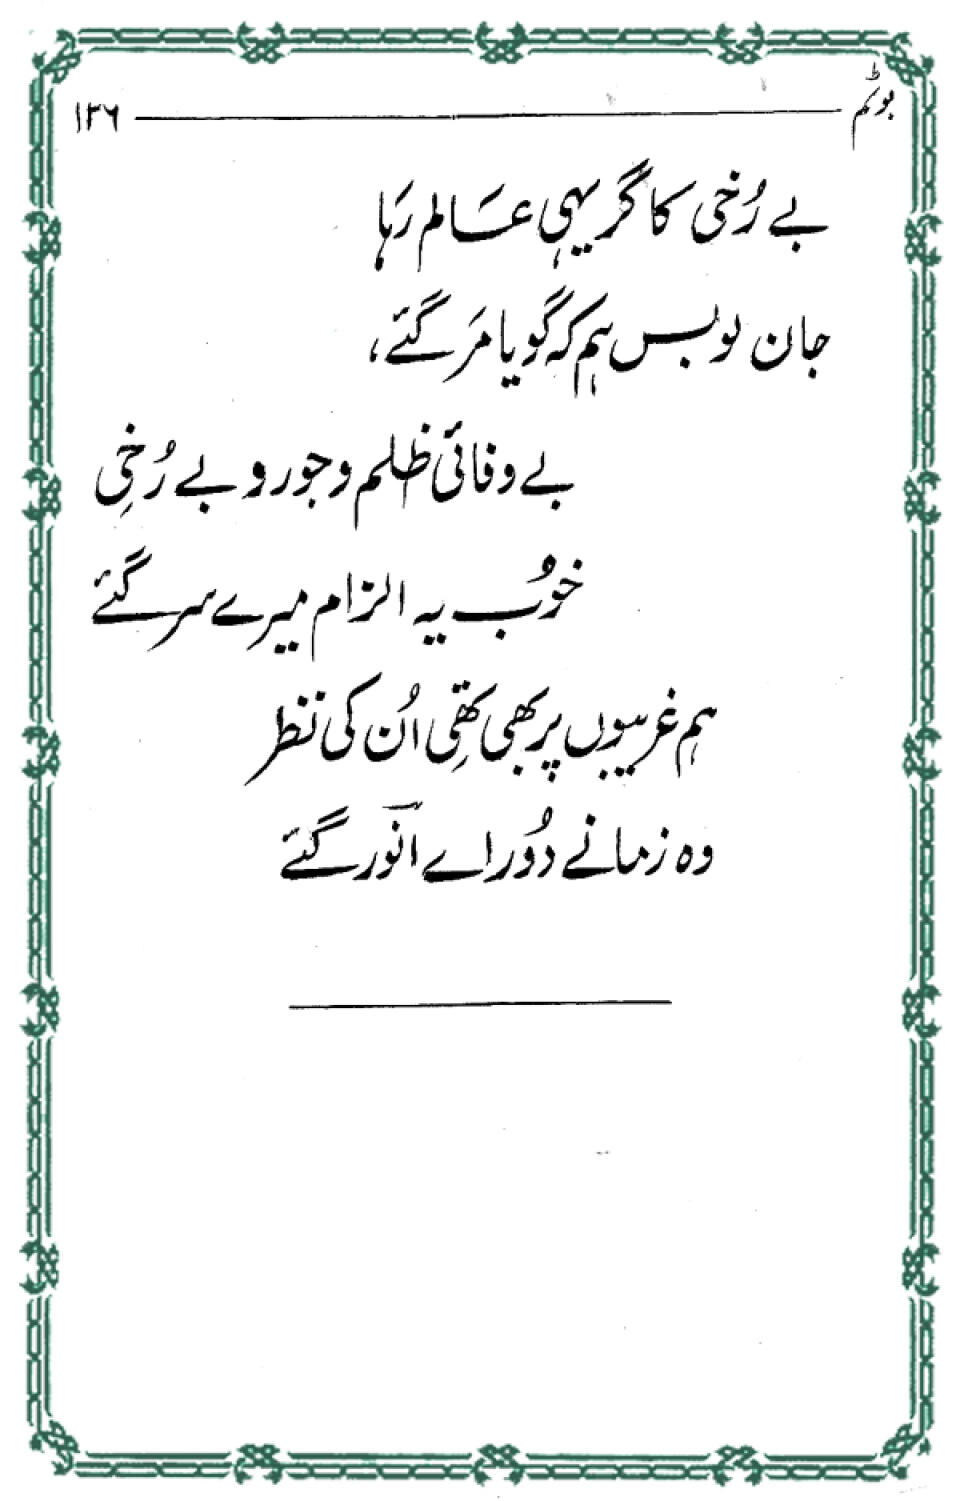 بوٹم ۱۳۶
بے رُخی کا گر یہی عالم رہا
جان لو بس ہم کہ گویا مَر گئے،
بے وفائی ظلم و جور و بے رُخی
خوُب یہ الزام میرے سر گئے
ہم غریبوں پر بھی تھی اُن کی نظر
وہ زمانے دوُر اے انوؔر گئے